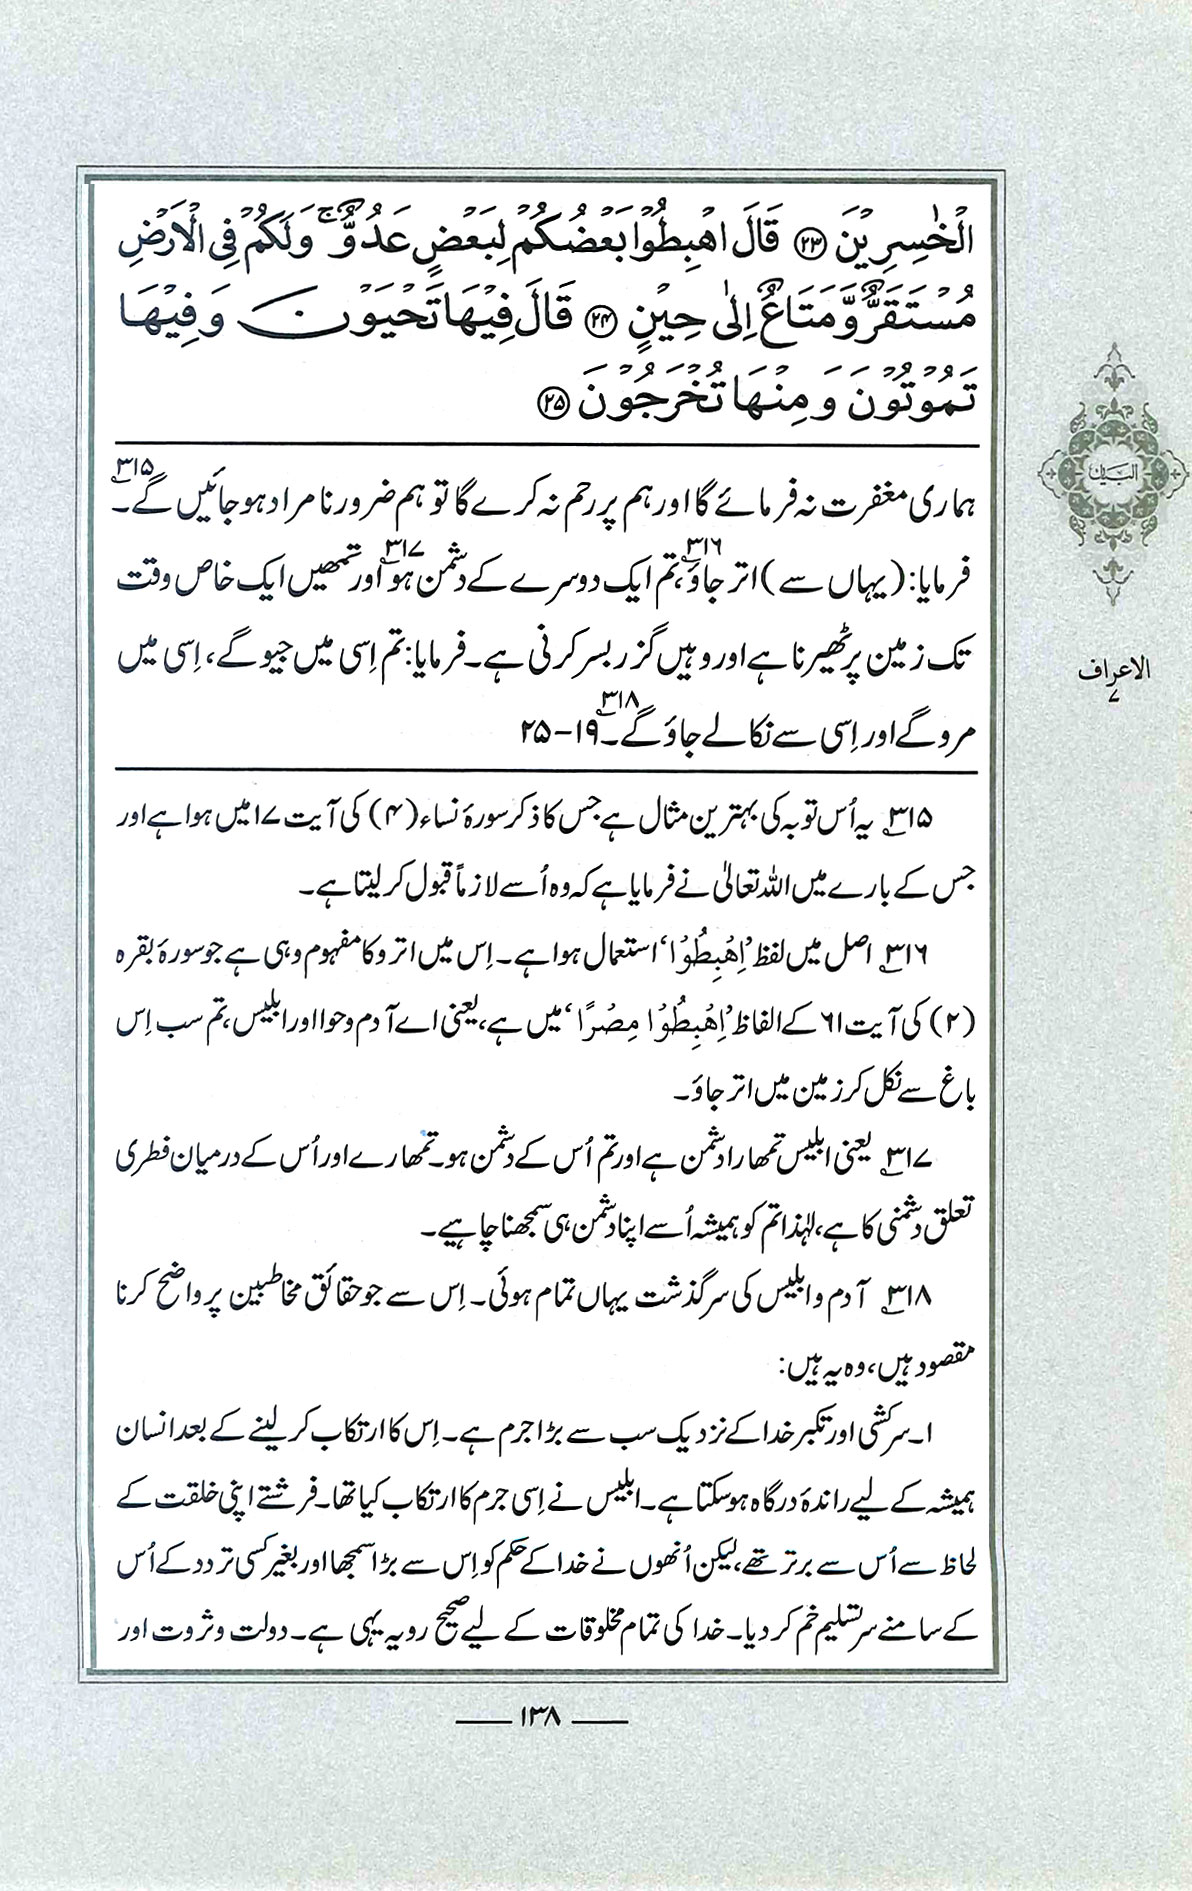 الْخٰسِرِيْنَ ﴿۲۳﴾ قَالَ اهْبِطُوْا بَعْضُكُمْ لِبَعْضٍ عَدُوٌّ ۚ وَلَكُمْ فِي الْاَرْضِ
مُسْتَقَرٌّ وَّمَتَاعٌ اِلٰى حِيْنٍ ﴿۲۴﴾ قَالَ فِيْهَا تَحْيَوْنَ وَفِيْهَا
تَمُوْتُوْنَ وَمِنْهَا تُخْرَجُوْنَ ﴿۲۵﴾
ہماری مغفرت نہ فرمائے گا اور ہم پر رحم نہ کرے گا تو ہم ضرور نامراد ہو جائیں گے۔ ۳۱۵
فرمایا: (یہاں سے) اتر جاؤ ۳۱۶، تم ایک دوسرے کے دشمن ہو ۳۱۷ اور تمھیں ایک خاص وقت
تک زمین پر ٹھیرنا ہے اور وہیں گزر بسر کرنی ہے۔ فرمایا: تم اِسی میں جیو گے، اِسی میں
مرو گے اور اِسی سے نکالے جاؤ گے۔ ۳۱۸ ۱۹-۲۵
البیان
الاعراف
۷
۳۱۵ یہ اُس توبہ کی بہترین مثال ہے جس کا ذکر سورۂ نساء (۴) کی آیت ۱۷ میں ہوا ہے اور
جس کے بارے میں اللہ تعالیٰ نے فرمایا ہے کہ وہ اُسے لازماً قبول کر لیتا ہے۔
۳۱۶ اصل میں لفظ ’اِهْبِطُوْا‘ استعمال ہوا ہے۔ اِس میں اترو کا مفہوم وہی ہے جو سورۂ بقرہ
(۲) کی آیت ۶۱ کے الفاظ ’اِهْبِطُوْا مِصْرًا‘ میں ہے، یعنی اے آدم و حوا اور ابلیس، تم سب اِس
باغ سے نکل کر زمین میں اتر جاؤ۔
۳۱۷ یعنی ابلیس تمھارا دشمن ہے اور تم اُس کے دشمن ہو۔ تمھارے اور اُس کے درمیان فطری
تعلق دشمنی کا ہے، لہٰذا تم کو ہمیشہ اُسے اپنا دشمن ہی سمجھنا چاہیے۔
۳۱۸ آدم و ابلیس کی سرگذشت یہاں تمام ہوئی۔ اِس سے جو حقائق مخاطبین پر واضح کرنا
مقصود ہیں، وہ یہ ہیں:
۱۔ سرکشی اور تکبر خدا کے نزدیک سب سے بڑا جرم ہے۔ اِس کا ارتکاب کر لینے کے بعد انسان
ہمیشہ کے لیے راندۂ درگاہ ہو سکتا ہے۔ ابلیس نے اِسی جرم کا ارتکاب کیا تھا۔ فرشتے اپنی خلقت کے
لحاظ سے اُس سے برتر تھے، لیکن اُنھوں نے خدا کے حکم کو اِس سے بڑا سمجھا اور بغیر کسی تردد کے اُس
کے سامنے سر تسلیم خم کر دیا۔ خدا کی تمام مخلوقات کے لیے صحیح رویہ یہی ہے۔ دولت و ثروت اور
۱۳۸